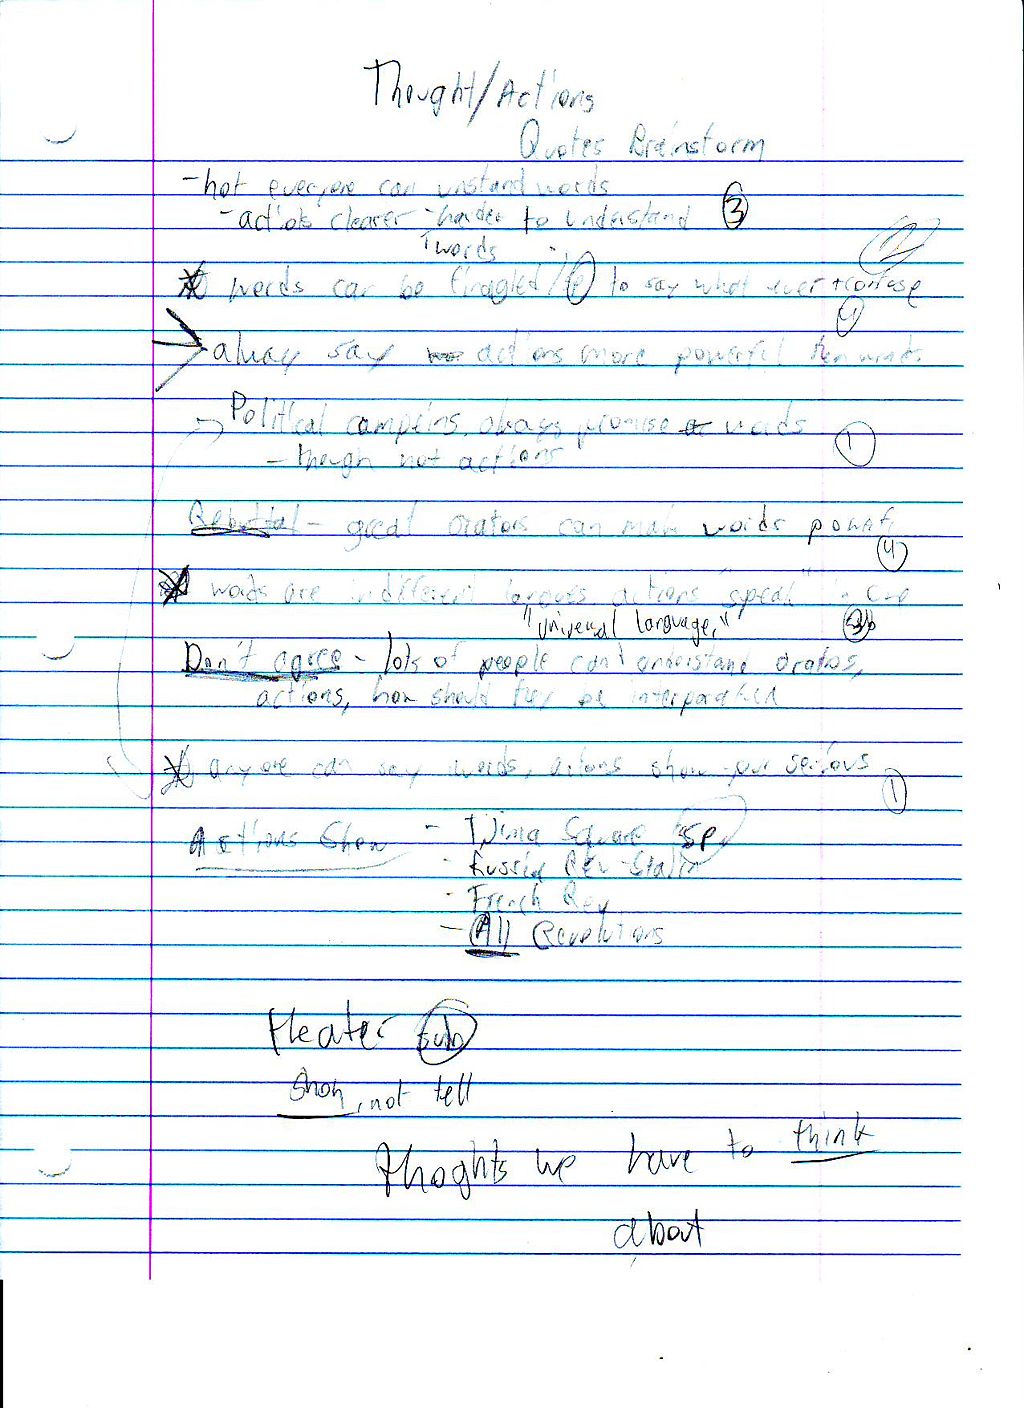 Thought/Actions
Quotes Brainstorm
- not everyone can unstand words
- actiots clearer - harder to understand
↑ words
3
2
words can be finagled / to say what ever + confuse
4
alway say actions more powerful then words
Political campeins, always promise words
1
- though not actions
Rebuttal - great orators can make words powerf
4
words are in different actions "speal" in
"Universal language,"
3b
Don't agree - lots of people can't understand orators,
actions, how should they be
anyone can say words, actions show your serious
1
Actions Show - Square SP
- Russia Rev - Stalin
- French Rev
- All Revolutions
sub
Show, not tell
thoghts we have to think
about